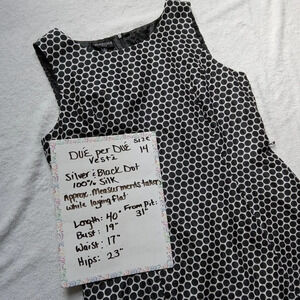 DUE per DUE
Vest2
Size
14
Silver & Black Dot
100% Silk
Approx. Measurments taken
while laying flat
Length: 40"
From Pit:
31"
Bust: 19"
Waist: 17"
Hips: 23"